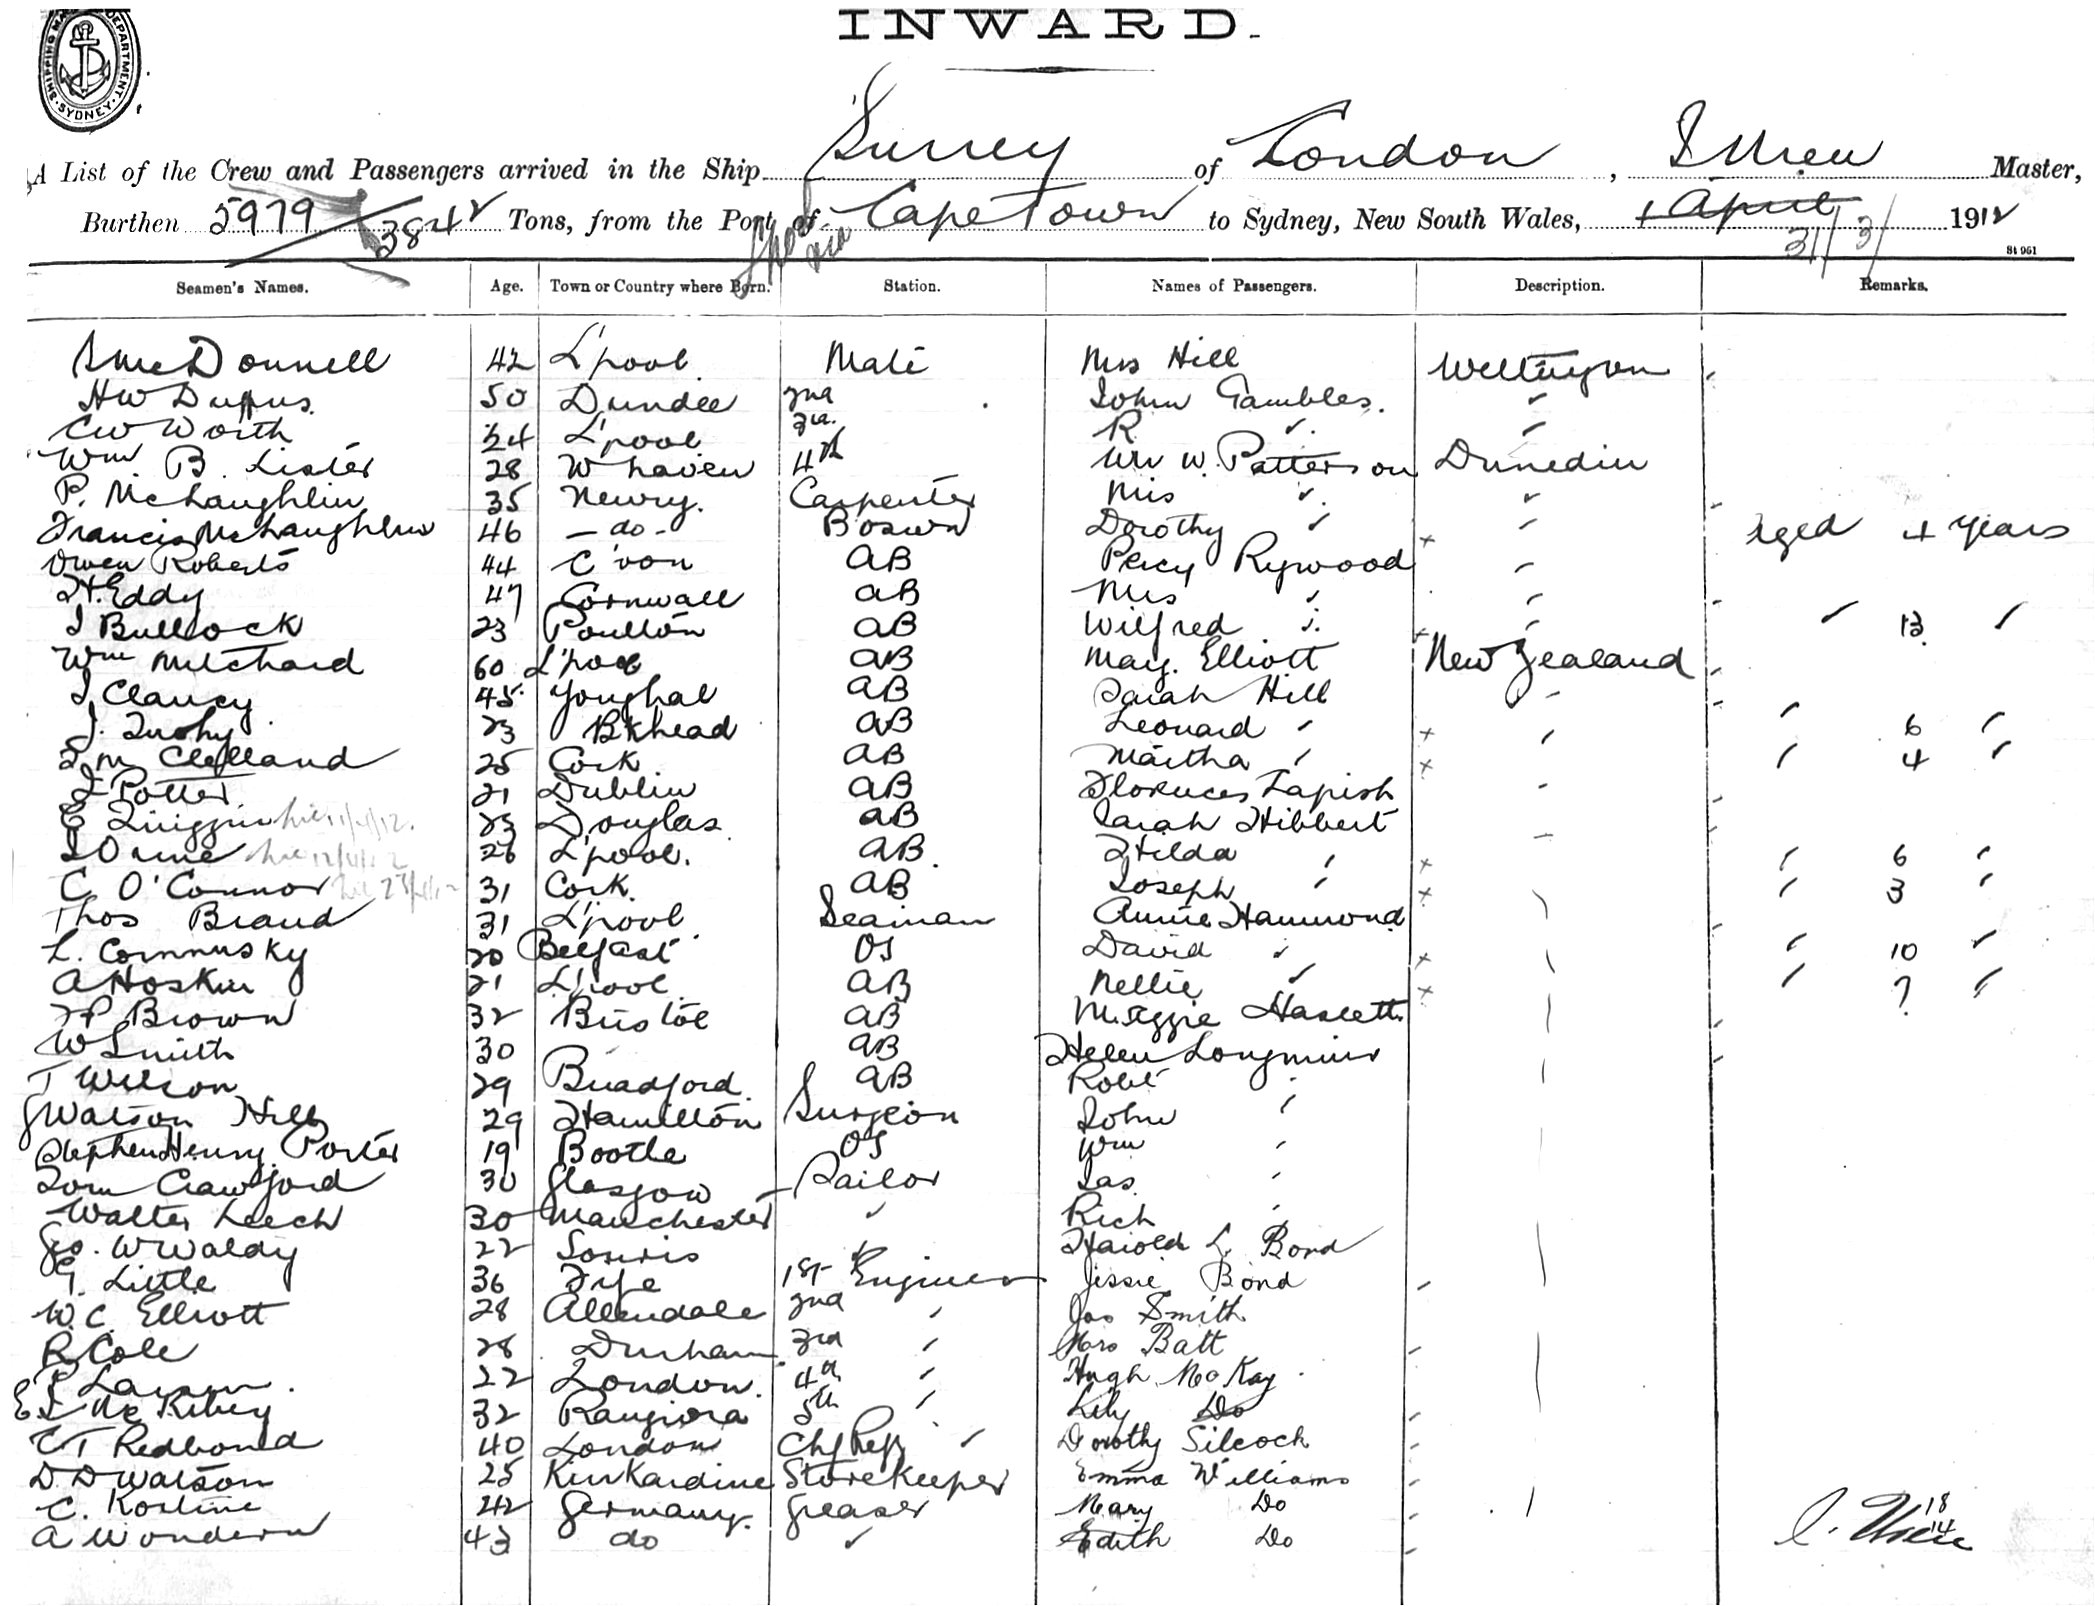 SHIPPING MA DEPARTMENT SYDNEY
INWARD.
A List of the Crew and Passengers arrived in the Ship Surrey of London, Master,
Burthen 5979 / 3842 Tons, from the Port of Cape Town to Sydney, New South Wales, 1 April 31/3/ 1912
St 961
Seamen's Names. Age. Town or Country where Born. Station. Names of Passengers. Description. Remarks.
McDonnell 42 L'pool Mate Mrs Hill Wellington
HW Duffus 50 Dundee 2nd John Gambles. "
CW Worth 24 L'pool 3rd. R " "
Wm B. Lister 28 W'haven 4th Mr W. Patterson Dunedin
P. McLaughlin 35 Newry. Carpenter Mrs " "
Francis McLaughlin 46 - do - Bosun Dorothy " " x Aged 4 Years
Owen Roberts 44 C'von AB Percy Rywood "
H. Eddy 47 Cornwall AB Mrs " "
J Bullock 23 Poulton AB Wilfred " " " 13 "
Wm Mitchard 60 L'pool AB Mary. Elliott New Zealand
J Clancy 45 Youghal AB Sarah Hill "
J. Tuohy 23 B'khead AB Leonard " x " " 6 "
Clelland 25 Cork AB Martha " x " 4 "
J Potter 21 Dublin AB Florences Tapish "
E Quiggin 23 Douglas AB Sarah Hibbert "
J Orme 26 L'pool. AB. Hilda " x " 6 "
C. O'Connor 31 Cork AB Joseph " x " 3 "
Thos Brand 31 L'pool Seaman Annie Hammond
L. Commusky 20 Belfast OS David " x " 10 "
A Hoskin 21 L'pool AB Nellie " x " 7 "
Brown 32 Bristol AB Maggie Haslett
W Smith 30 AB Helen Longmuir
T Wilson 29 Bradford AB Robt "
J Watson Hill 29 Hamilton Surgeon John "
Stephen Henry Porter 19 Bootle OS Wm "
Tom Crawford 30 Glasgow - Sailor Jas "
Walter Leech 30 Manchester " Rich "
Geo. W Waldy 22 Souris " Harold L. Bond
G. Little 36 Fife 1st Engineer Jessie Bond
W. C. Elliott 28 Allendale 2nd " Jas Smith
R Cole 28 Durham 3rd " Mrs Batt
P Larsen. 22 London. 4th " Hugh McKay
32 Rangiora 5th " Lily Do
Redbond 40 London Chf Refr " Dorothy Silcock
D. D Watson 25 Kinkardine Storekeeper Emma Williams
C. Kortine 42 Germany. Greaser Mary Do
A Wondern 43 do " Edith Do
18
14